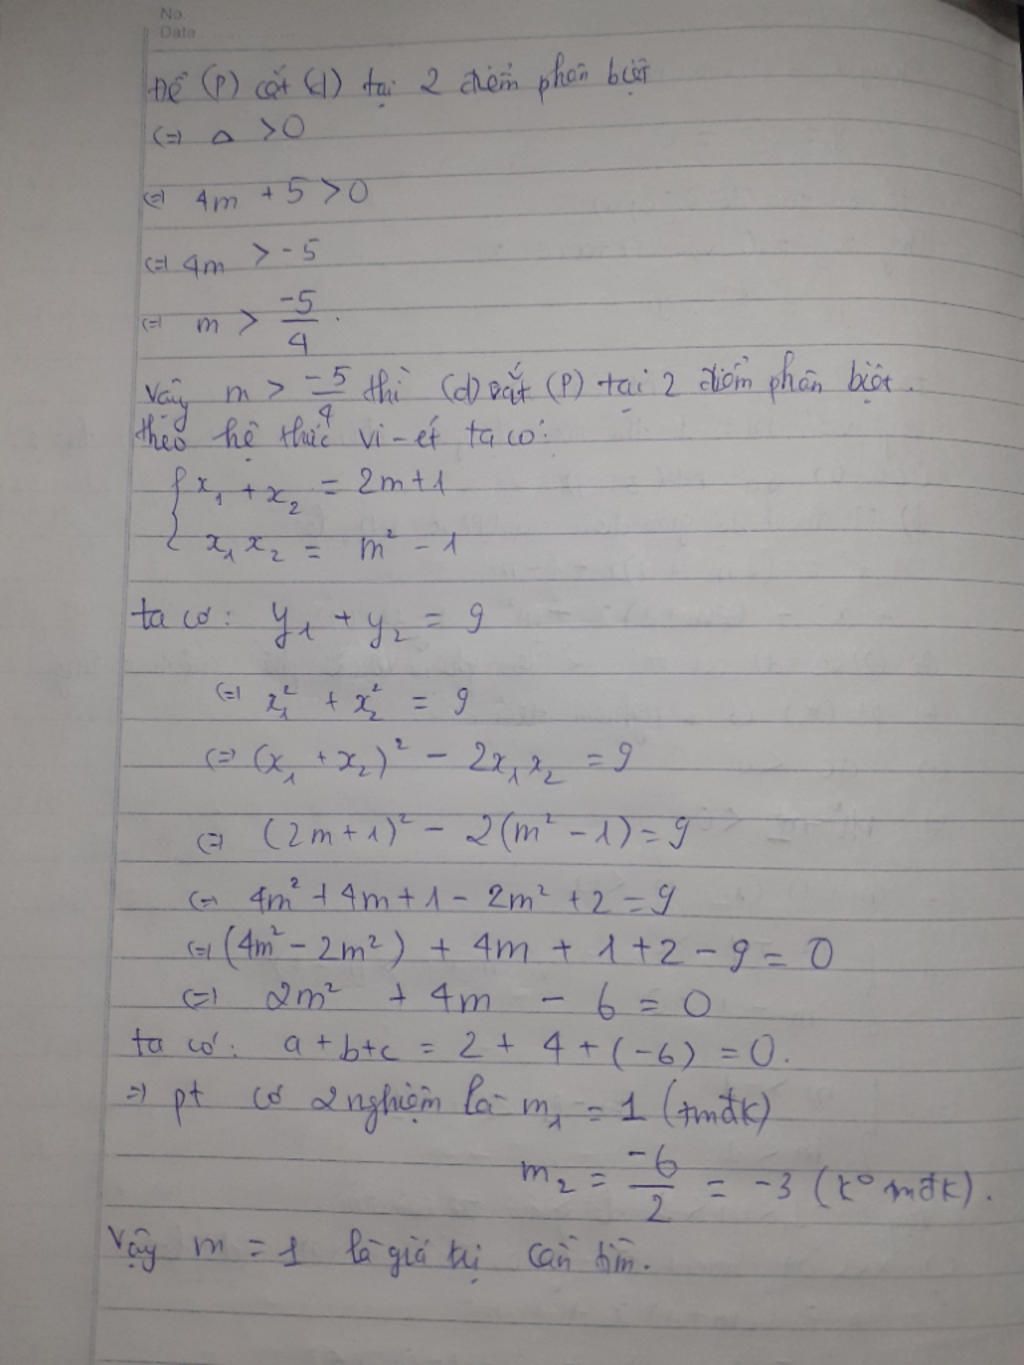 No.
Date
Để (P) cắt (d) tại 2 điểm phân biệt
(=) Δ > 0
(=) 4m + 5 > 0
(=) 4m > -5
(=) m > -5/4.
Vậy m > -5/4 thì (d) cắt (P) tại 2 điểm phân biệt.
theo hệ thức vi-ét ta có:
{ x₁ + x₂ = 2m+1
x₁x₂ = m² - 1
ta có: y₁ + y₂ = 9
(=) x₁² + x₂² = 9
(=) (x₁ + x₂)² - 2x₁x₂ = 9
(=) (2m+1)² - 2(m² - 1) = 9
(=) 4m² + 4m + 1 - 2m² + 2 = 9
(=) (4m² - 2m²) + 4m + 1 + 2 - 9 = 0
(=) 2m² + 4m - 6 = 0
ta có: a+b+c = 2 + 4 + (-6) = 0.
=) pt có 2 nghiệm là m₁ = 1 (tmđk)
m₂ = -6/2 = -3 (k° tmđk).
Vậy m = 1 là giá trị cần tìm.